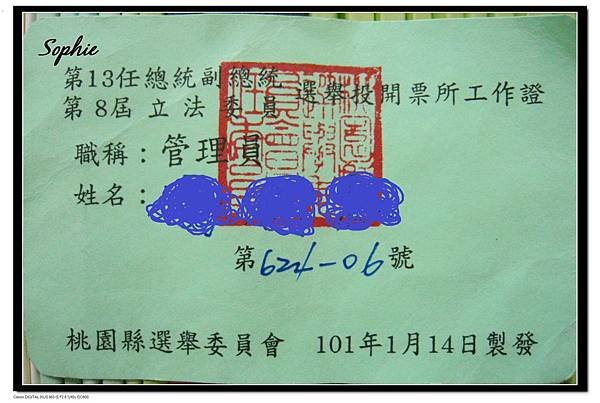 Sophie
第13任總統副總統
第 8屆 立 法 委 員 選舉投開票所工作證
職稱：管理員
姓名：
第624-06號
桃園縣選舉委員會 101年1月14日製發